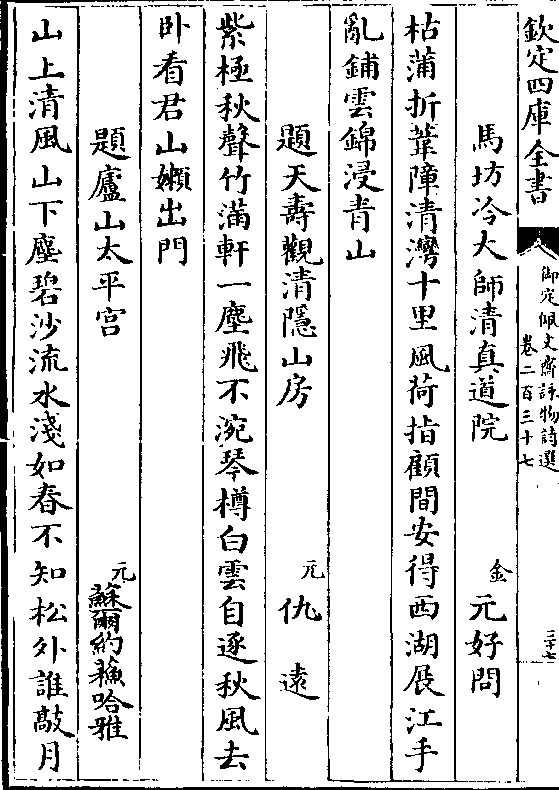 欽定四庫全書
御定佩文齋詠物詩選
卷二百三十七
三十七
馬坊冷大師清真道院
金
元好問
枯蒲折葦障清灣十里風荷指顧間安得西湖展江手
亂鋪雲錦浸青山
題天壽觀清隱山房
元
仇遠
紫極秋聲竹滿軒一塵飛不涴琴樽白雲自逐秋風去
卧看君山嬾出門
題廬山太平宫
元
蘇爾約蘓哈雅
山上清風山下塵碧沙流水淺如春不知松外誰敲月